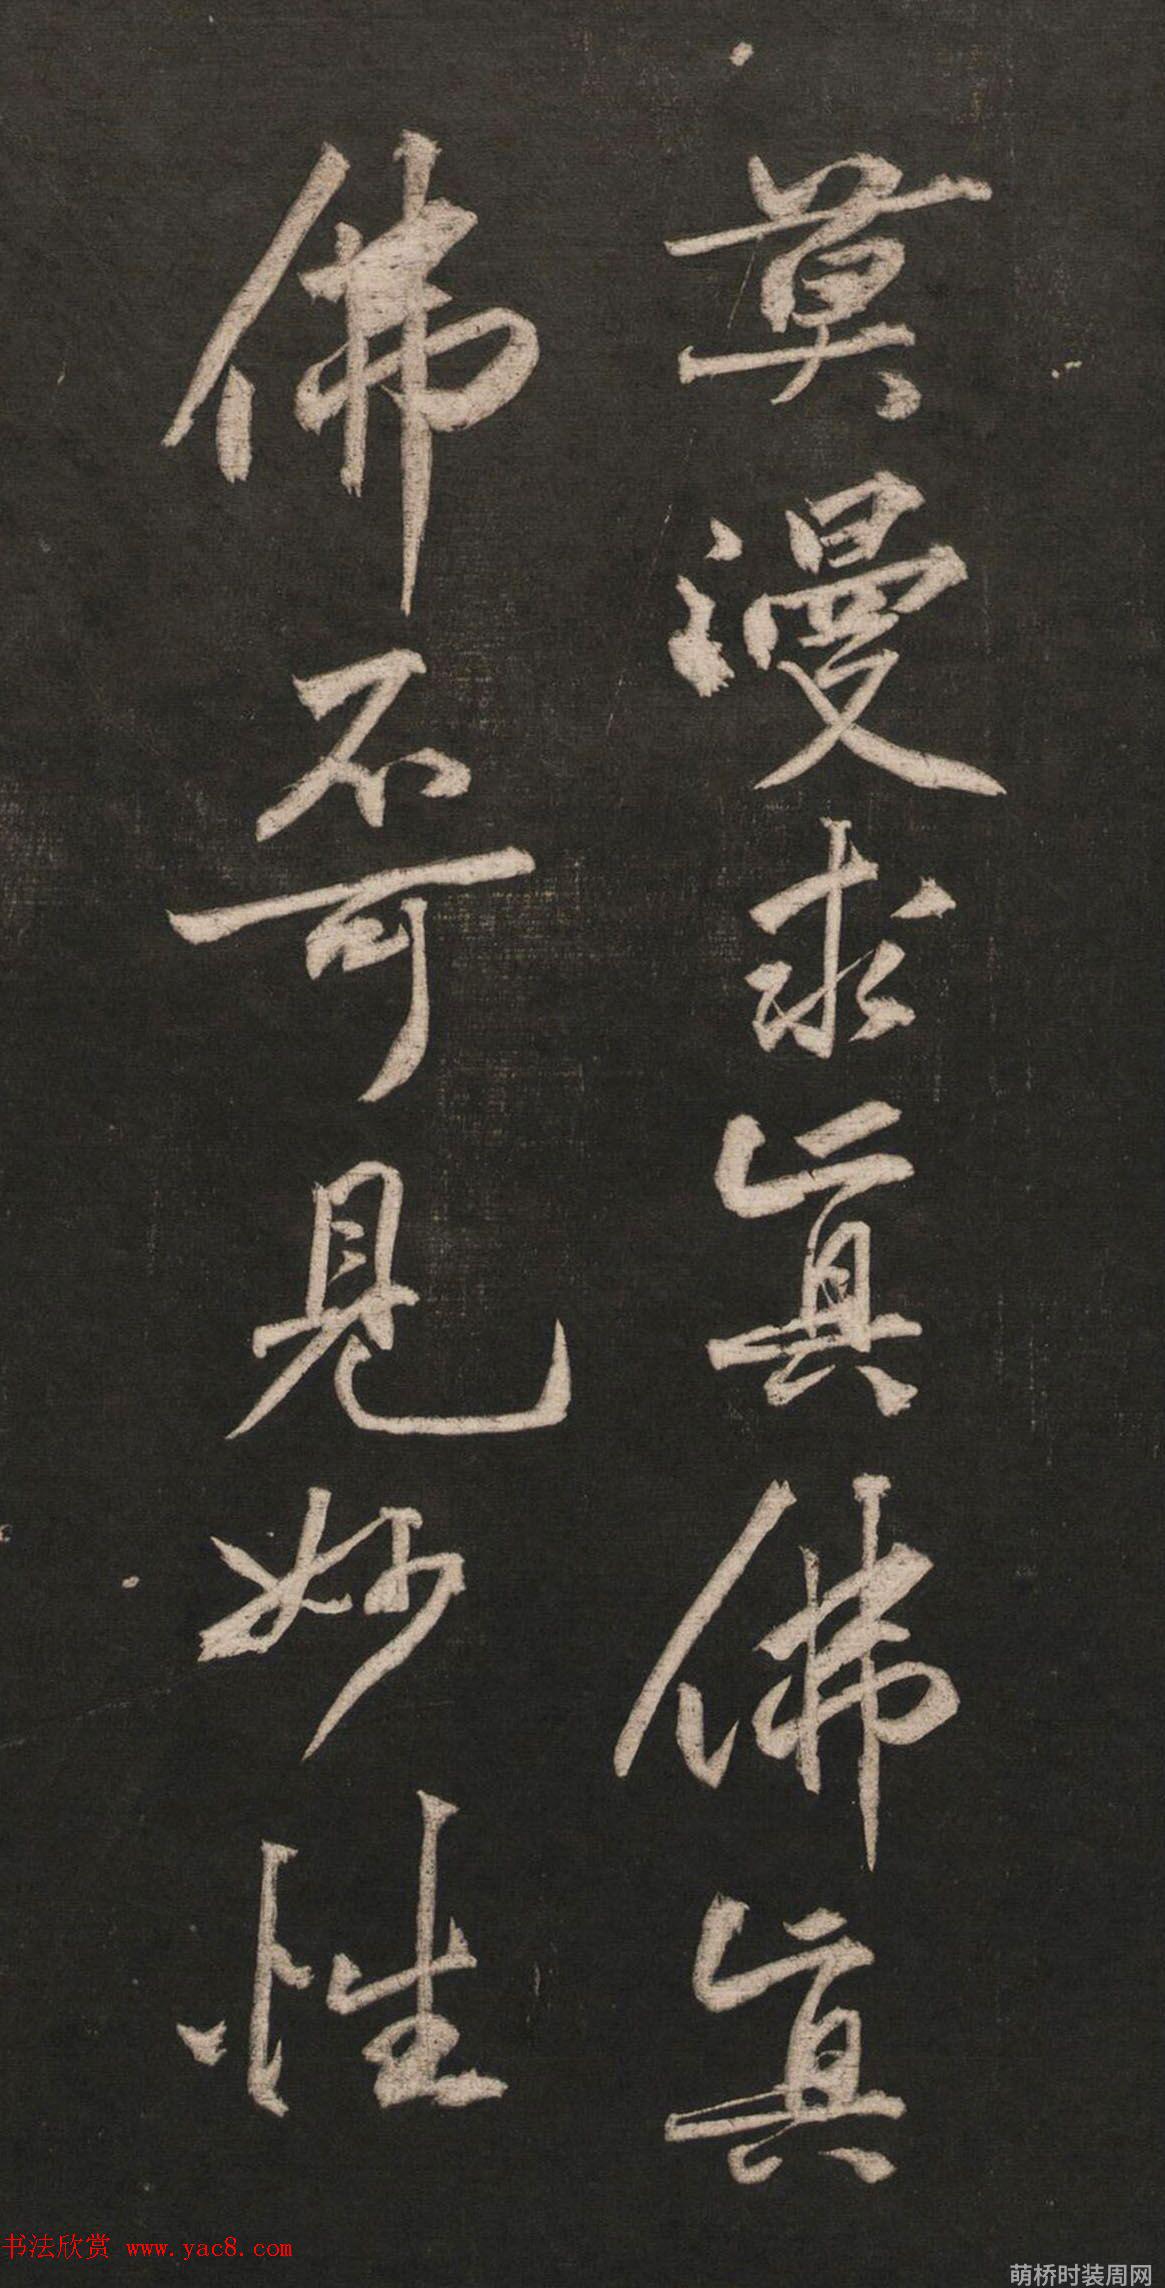 莫漫求眞佛眞
佛不可見妙性
书法欣赏 www.yac8.com
萌桥时装周网